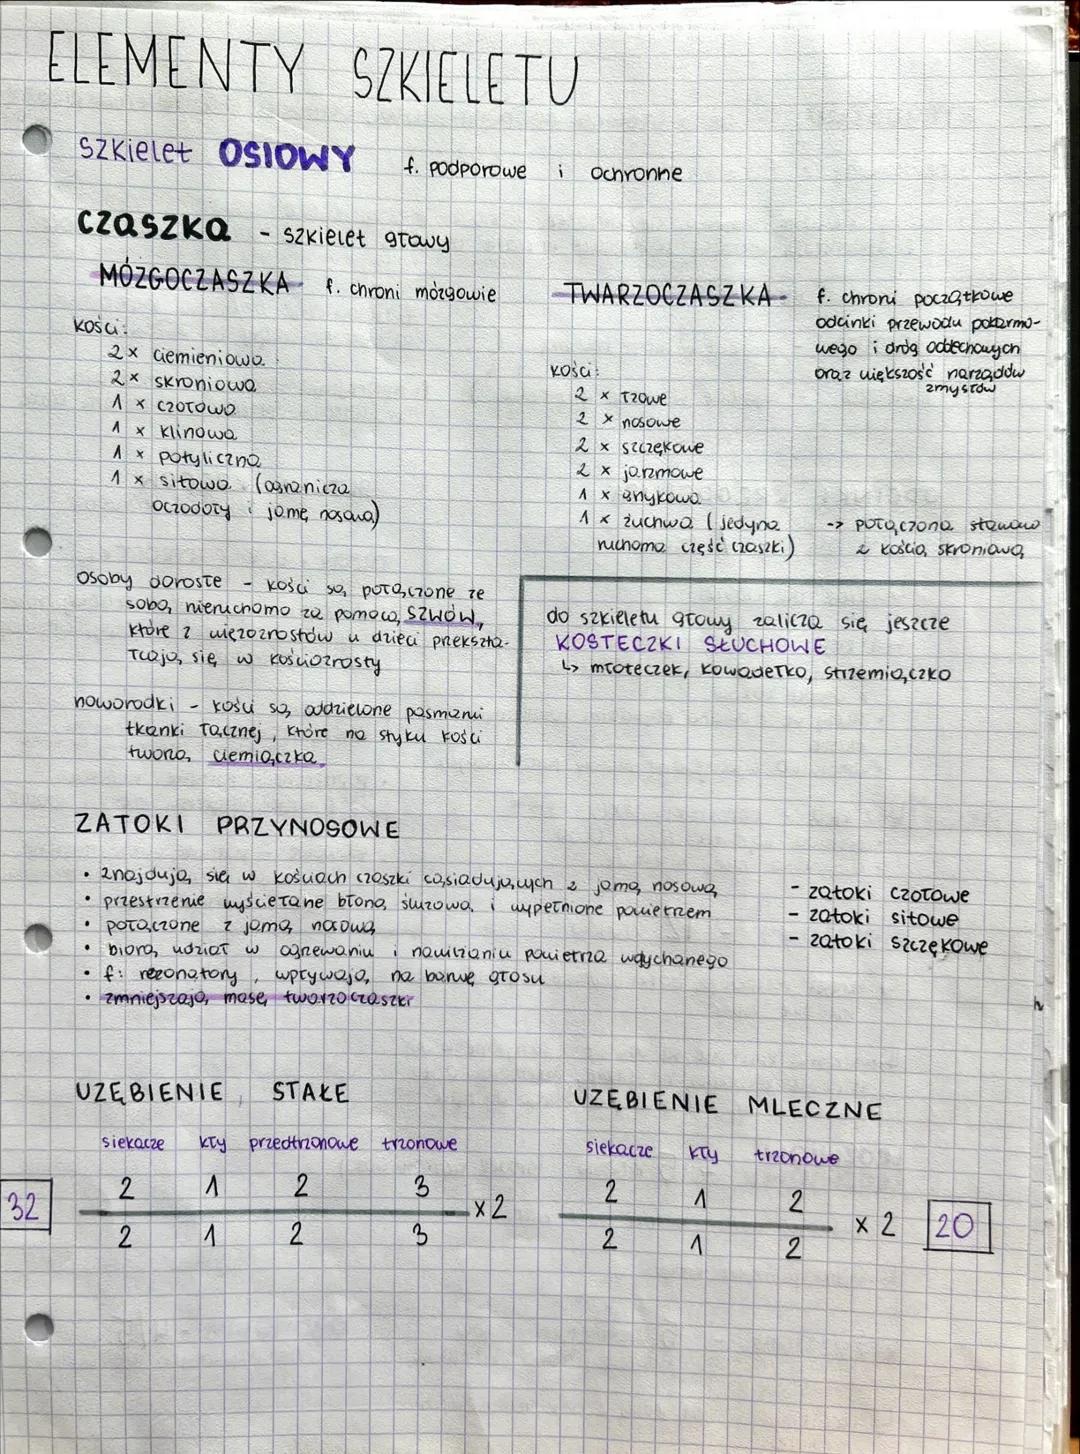 ELEMENTY SZKIELETU
szkielet OSIOWY f. podporowe i ochronne
czaszka - szkielet głowy
MÓZGOCZASZKA - f. chroni mózgowie
kości:
2 x ciemieniowa
2 x skroniowa
1 x czołowa
1 x klinowa
1 x potyliczna
1 x sitowa (ogranicza
oczodoły i jamę nosową)
TWARZOCZASZKA - f. chroni początkowe
odcinki przewodu pokarmo-
wego i dróg oddechowych
oraz większość narządów
zmysłów
kości:
2 x łzowe
2 x nosowe
2 x szczękowe
2 x jarzmowe
1 x gnykowa
1 x żuchwa (jedyna
ruchoma część czaszki)
-> połączona stawowo
z kością skroniową
osoby dorosłe - kości są połączone ze
sobą nieruchomo za pomocą SZWÓW,
które z więzozrostów u dzieci przekszta-
łcają się w kościozrosty
noworodki - kości są oddzielone pasmami
tkanki łącznej, które na styku kości
tworzą ciemiączka
do szkieletu głowy zalicza się jeszcze
KOSTECZKI SŁUCHOWE
↳ młoteczek, kowadełko, strzemiączko
ZATOKI PRZYNOSOWE
• znajdują się w kościach czaszki sąsiadujących z jamą nosową
• przestrzenie wyścielane błoną śluzową i wypełnione powietrzem
• połączone z jamą nosową
• biorą udział w ogrzewaniu i nawilżaniu powietrza wdychanego
• f: rezonatory, wpływają na barwę głosu
• zmniejszają masę twarzoczaszki
- zatoki czołowe
- zatoki sitowe
- zatoki szczękowe
UZĘBIENIE STAŁE
siekacze kły przedtrzonowe trzonowe
2 1 2 3
32 x2
2 1 2 3
UZĘBIENIE MLECZNE
siekacze kły trzonowe
2 1 2
x 2 20
2 1 2